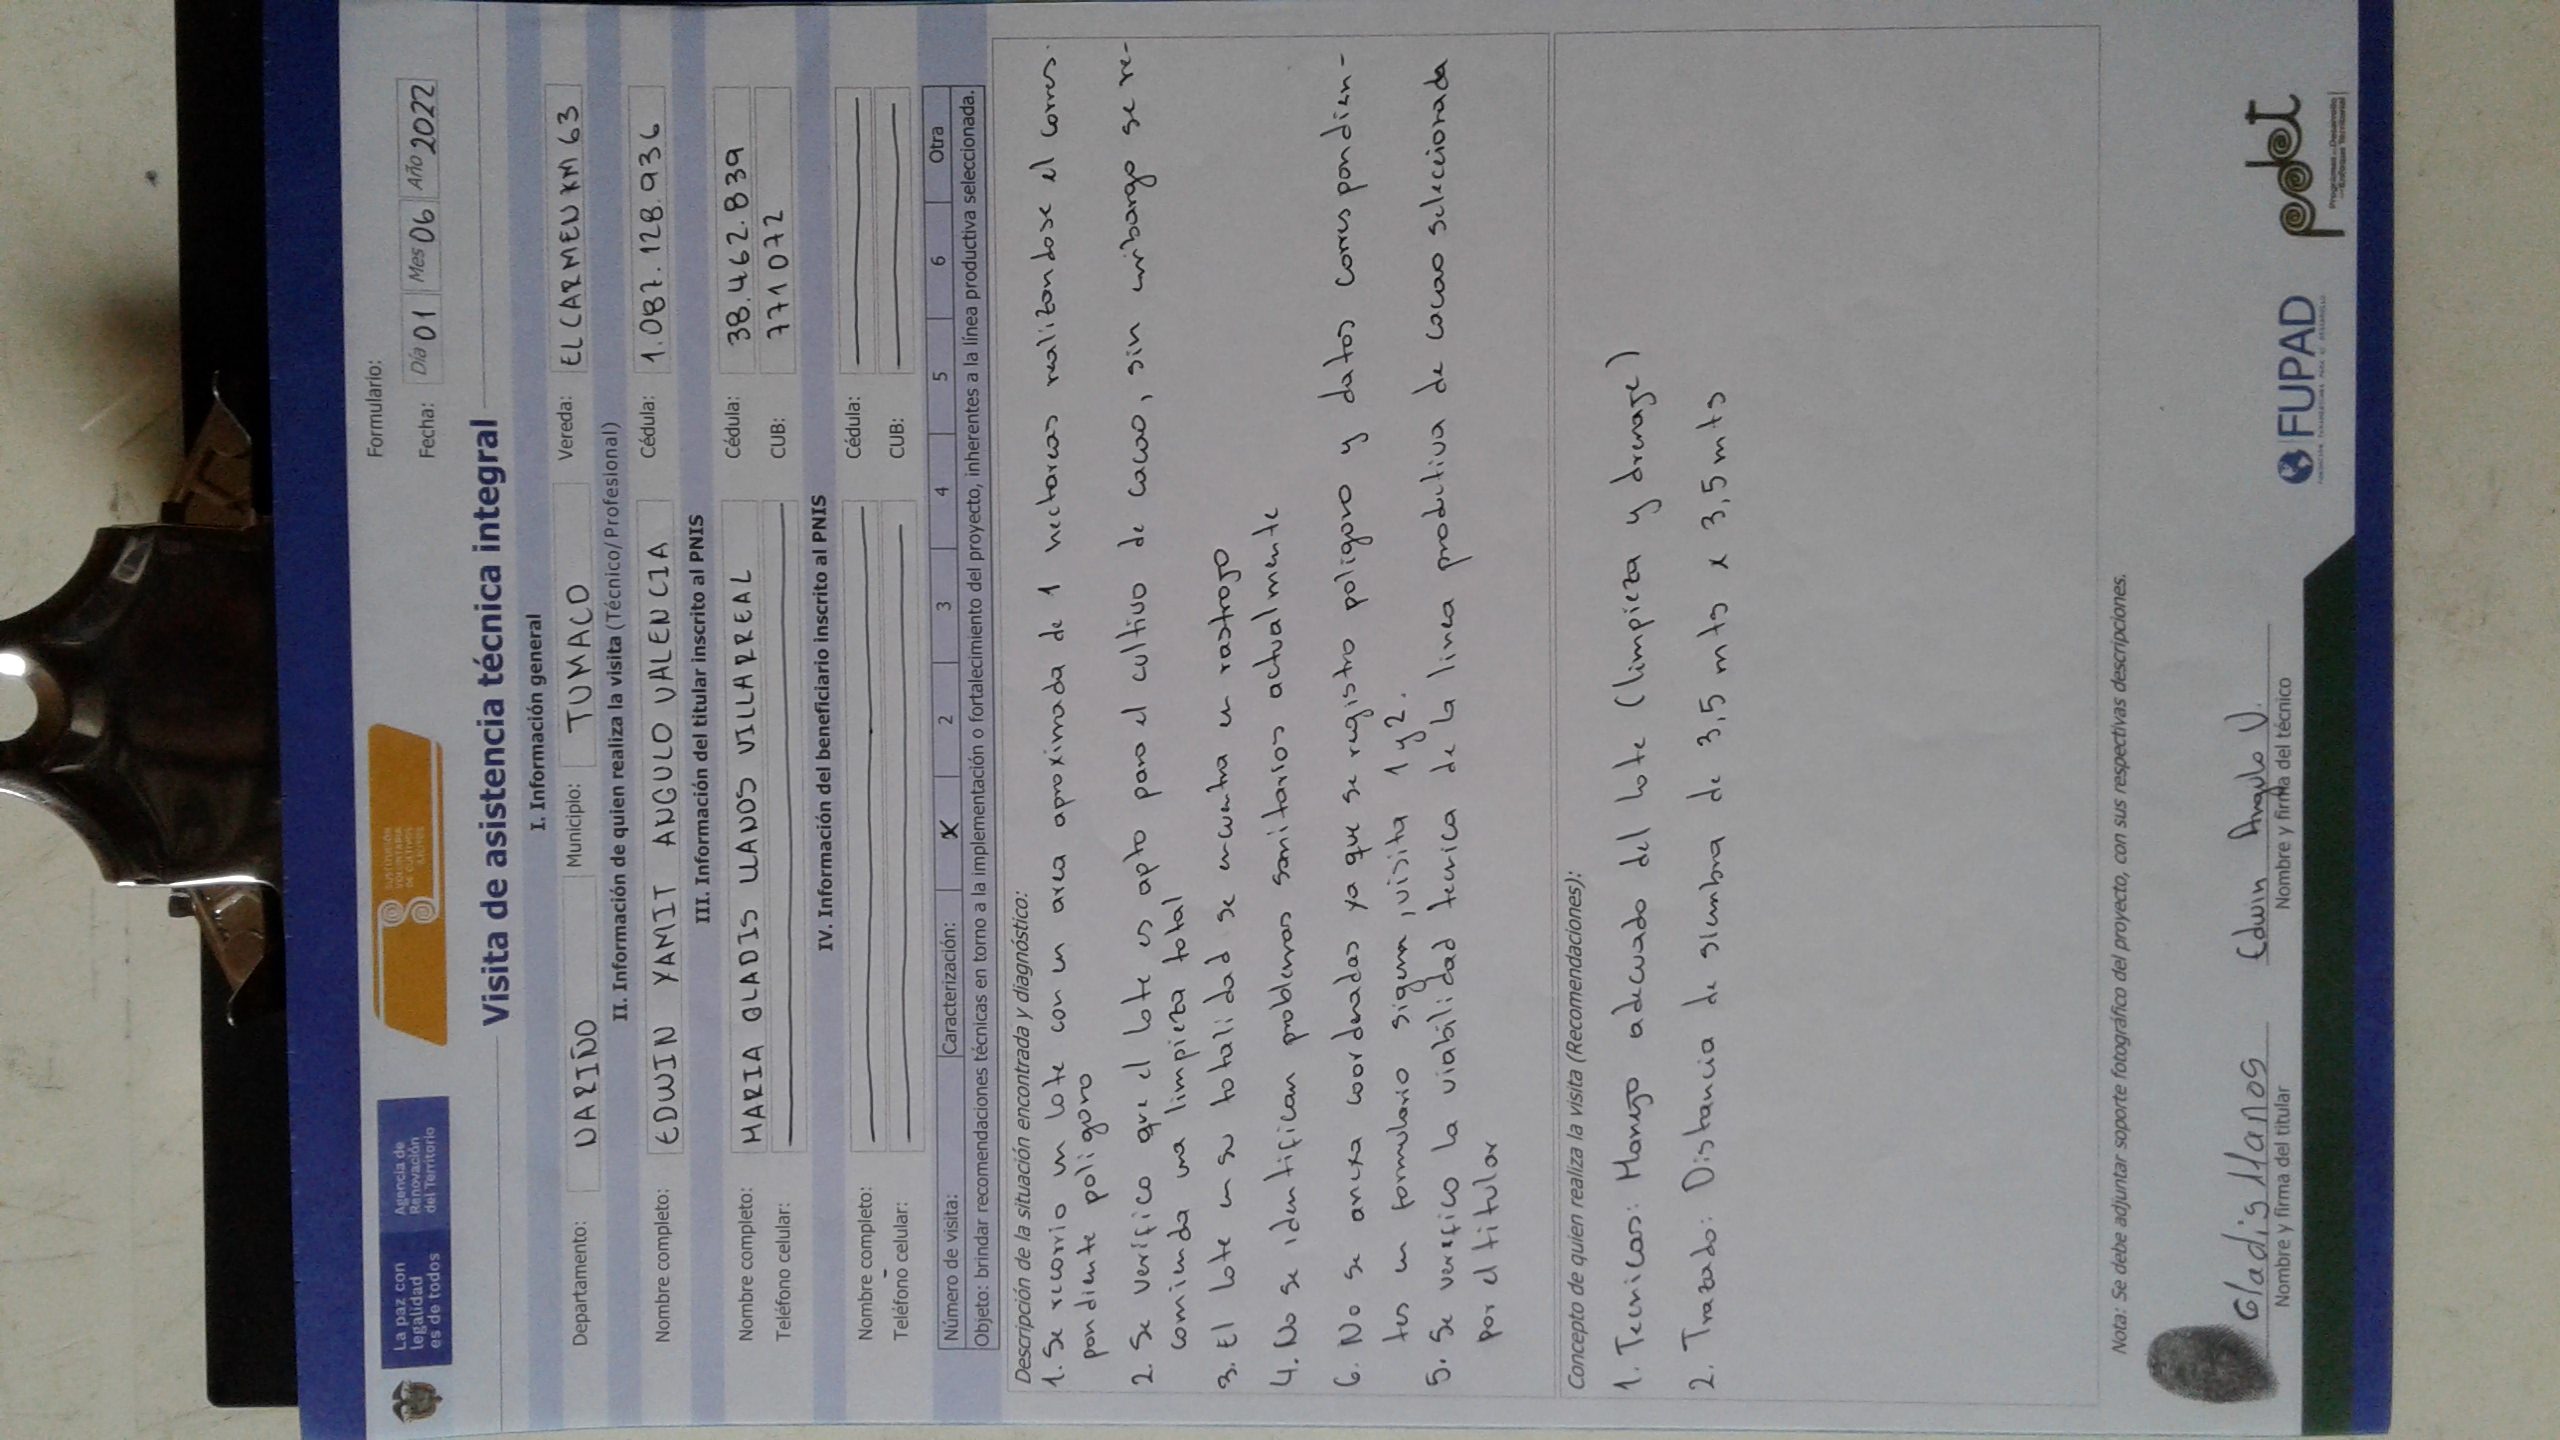 La paz con
legalidad
es de todos
Agencia de
Renovación
del Territorio
SUSTITUCIÓN
VOLUNTARIA
DE CULTIVOS
ILÍCITOS
Formulario:
Fecha: Día 01 Mes 06 Año 2022
Visita de asistencia técnica integral
I. Información general
Departamento: NARIÑO Municipio: TUMACO Vereda: EL CARMEN KM 63
II. Información de quien realiza la visita (Técnico/Profesional)
Nombre completo: EDWIN YAMIT ANGULO VALENCIA Cédula: 1.087.128.936
III. Información del titular inscrito al PNIS
Nombre completo: MARIA GLADIS LLANOS VILLARREAL Cédula: 38.462.839
Teléfono celular: CUB: 771072
IV. Información del beneficiario inscrito al PNIS
Nombre completo: Cédula:
Teléfono celular: CUB:
Número de visita: Caracterización: X 2 3 4 5 6 Otra
Objeto: brindar recomendaciones técnicas en torno a la implementación o fortalecimiento del proyecto, inherentes a la línea productiva seleccionada.
Descripción de la situación encontrada y diagnóstico:
1. Se recorrio un lote con un area aproximada de 1 hectareas realizandose el corres-
pondiente poligono
2. Se verifico que el lote es apto para el cultivo de cacao, sin embargo se re-
comienda una limpieza total
3. El lote en su totalidad se encuentra en rastrojo
4. No se identifican problemas sanitarios actualmente
6. No se anexa coordenadas ya que se registro poligono y datos correspondien-
tes en formulario sigema, visita 1 y 2.
5. Se verifico la viabilidad tecnica de la linea productiva de cacao seleccionada
por el titular
Concepto de quien realiza la visita (Recomendaciones):
1. Tecnicas: Manejo adecuado del lote (limpieza y drenaje)
2. Trazado: Distancia de siembra de 3,5 mts x 3,5 mts
Nota: Se debe adjuntar soporte fotográfico del proyecto, con sus respectivas descripciones.
Gladis llanos
Nombre y firma del titular
Edwin Angulo V.
Nombre y firma del técnico
FUPAD
pdet
Programas de Desarrollo
con Enfoque Territorial